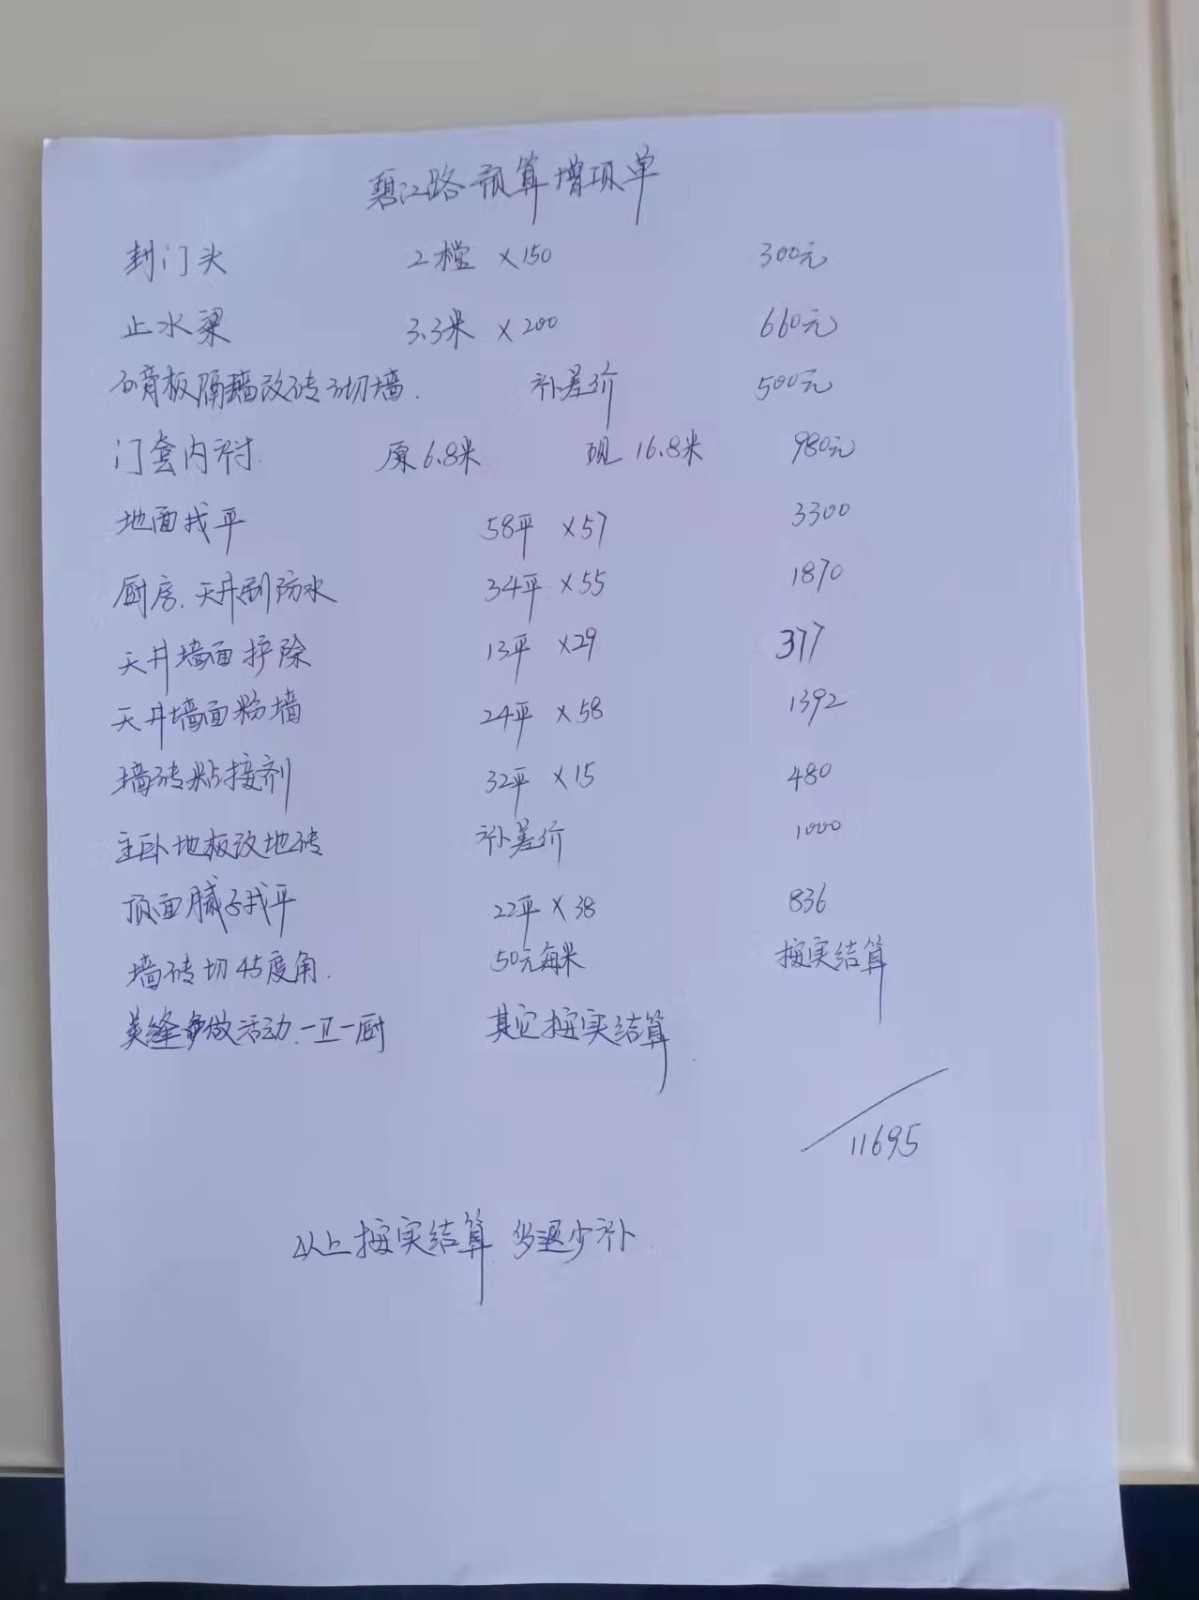 碧江路预算增项单
封门头 2樘 ×150 300元
止水梁 3.3米 ×200 660元
石膏板隔墙改砖砌墙. 补差价 500元
门套内衬. 原6.8米 现16.8米 980元
地面找平 58平 ×57 3300
厨房.天井刷防水 34平 ×55 1870
天井墙面铲除 13平 ×29 377
天井墙面粉墙 24平 ×58 1392
墙砖粘接剂 32平 ×15 480
主卧地板改地砖 补差价 1000
顶面腻子找平 22平 ×38 836
墙砖切45度角. 50元每米 按实结算
美缝做活动.一卫一厨 其它按实结算
11695
以上按实结算 多退少补